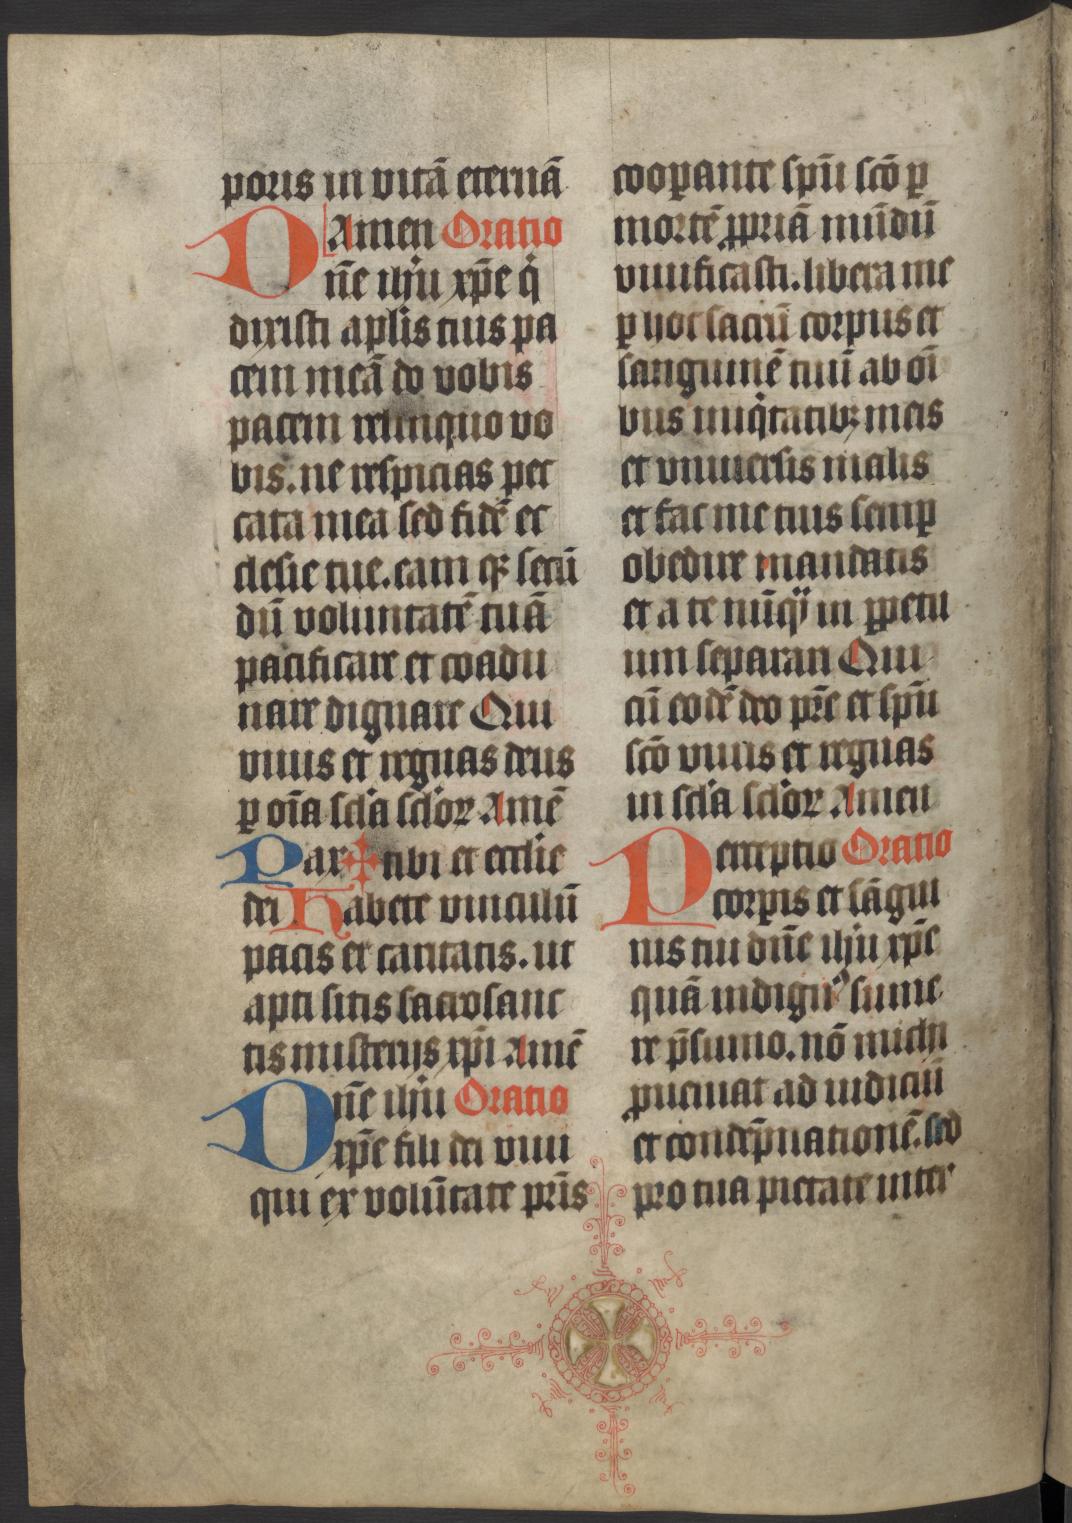 poris in vitā eternā
Amen Oratio
Dn̄e ih̄u xp̄e q̇
dixisti apl̄is tuis pa
cem meā do vobis
pacem relinquo vo
bis. ne respicias pec
cata mea sed fidē ec
clesie tue. eam qꝫ secū
dū voluntatē tuā
pacificare et coadu
nare dignare Qui
viuis et regnas deus
ꝑ oīa sc̄la sc̄loꝝ Amē
Pax ✠ tibi et ecclie
dei Habete vinculū
pacis et caritatis. ut
apti sitis sacrosanc
tis misterijs xp̄i Amē
Dn̄e ih̄u Oratio
xp̄e fili dei viui
qui ex volūtate pr̄is
cooꝑante sp̄u sc̄o ꝑ
mortē ꝓpriā mūdū
viuificasti. libera me
ꝑ hoc sacrū corpus et
sanguinē tuū ab oī
bus iniq̇tatibꝫ meis
et vniuersis malis
et fac me tuis semꝑ
obedire mandatis
et a te nūqͣ in ꝑpetu
um separari Qui
cū eodē deo pr̄e et sp̄u
sc̄o viuis et regnas
in sc̄la sc̄loꝝ Amen
Perceptio Oratio
corꝑis et sāgui
nis tui dn̄e ih̄u xp̄e
quā indignꝰ sume
re p̄sumo. nō michi
ꝓueniat ad iudiciū
et condēpnationē. sed
pro tua pietate inter